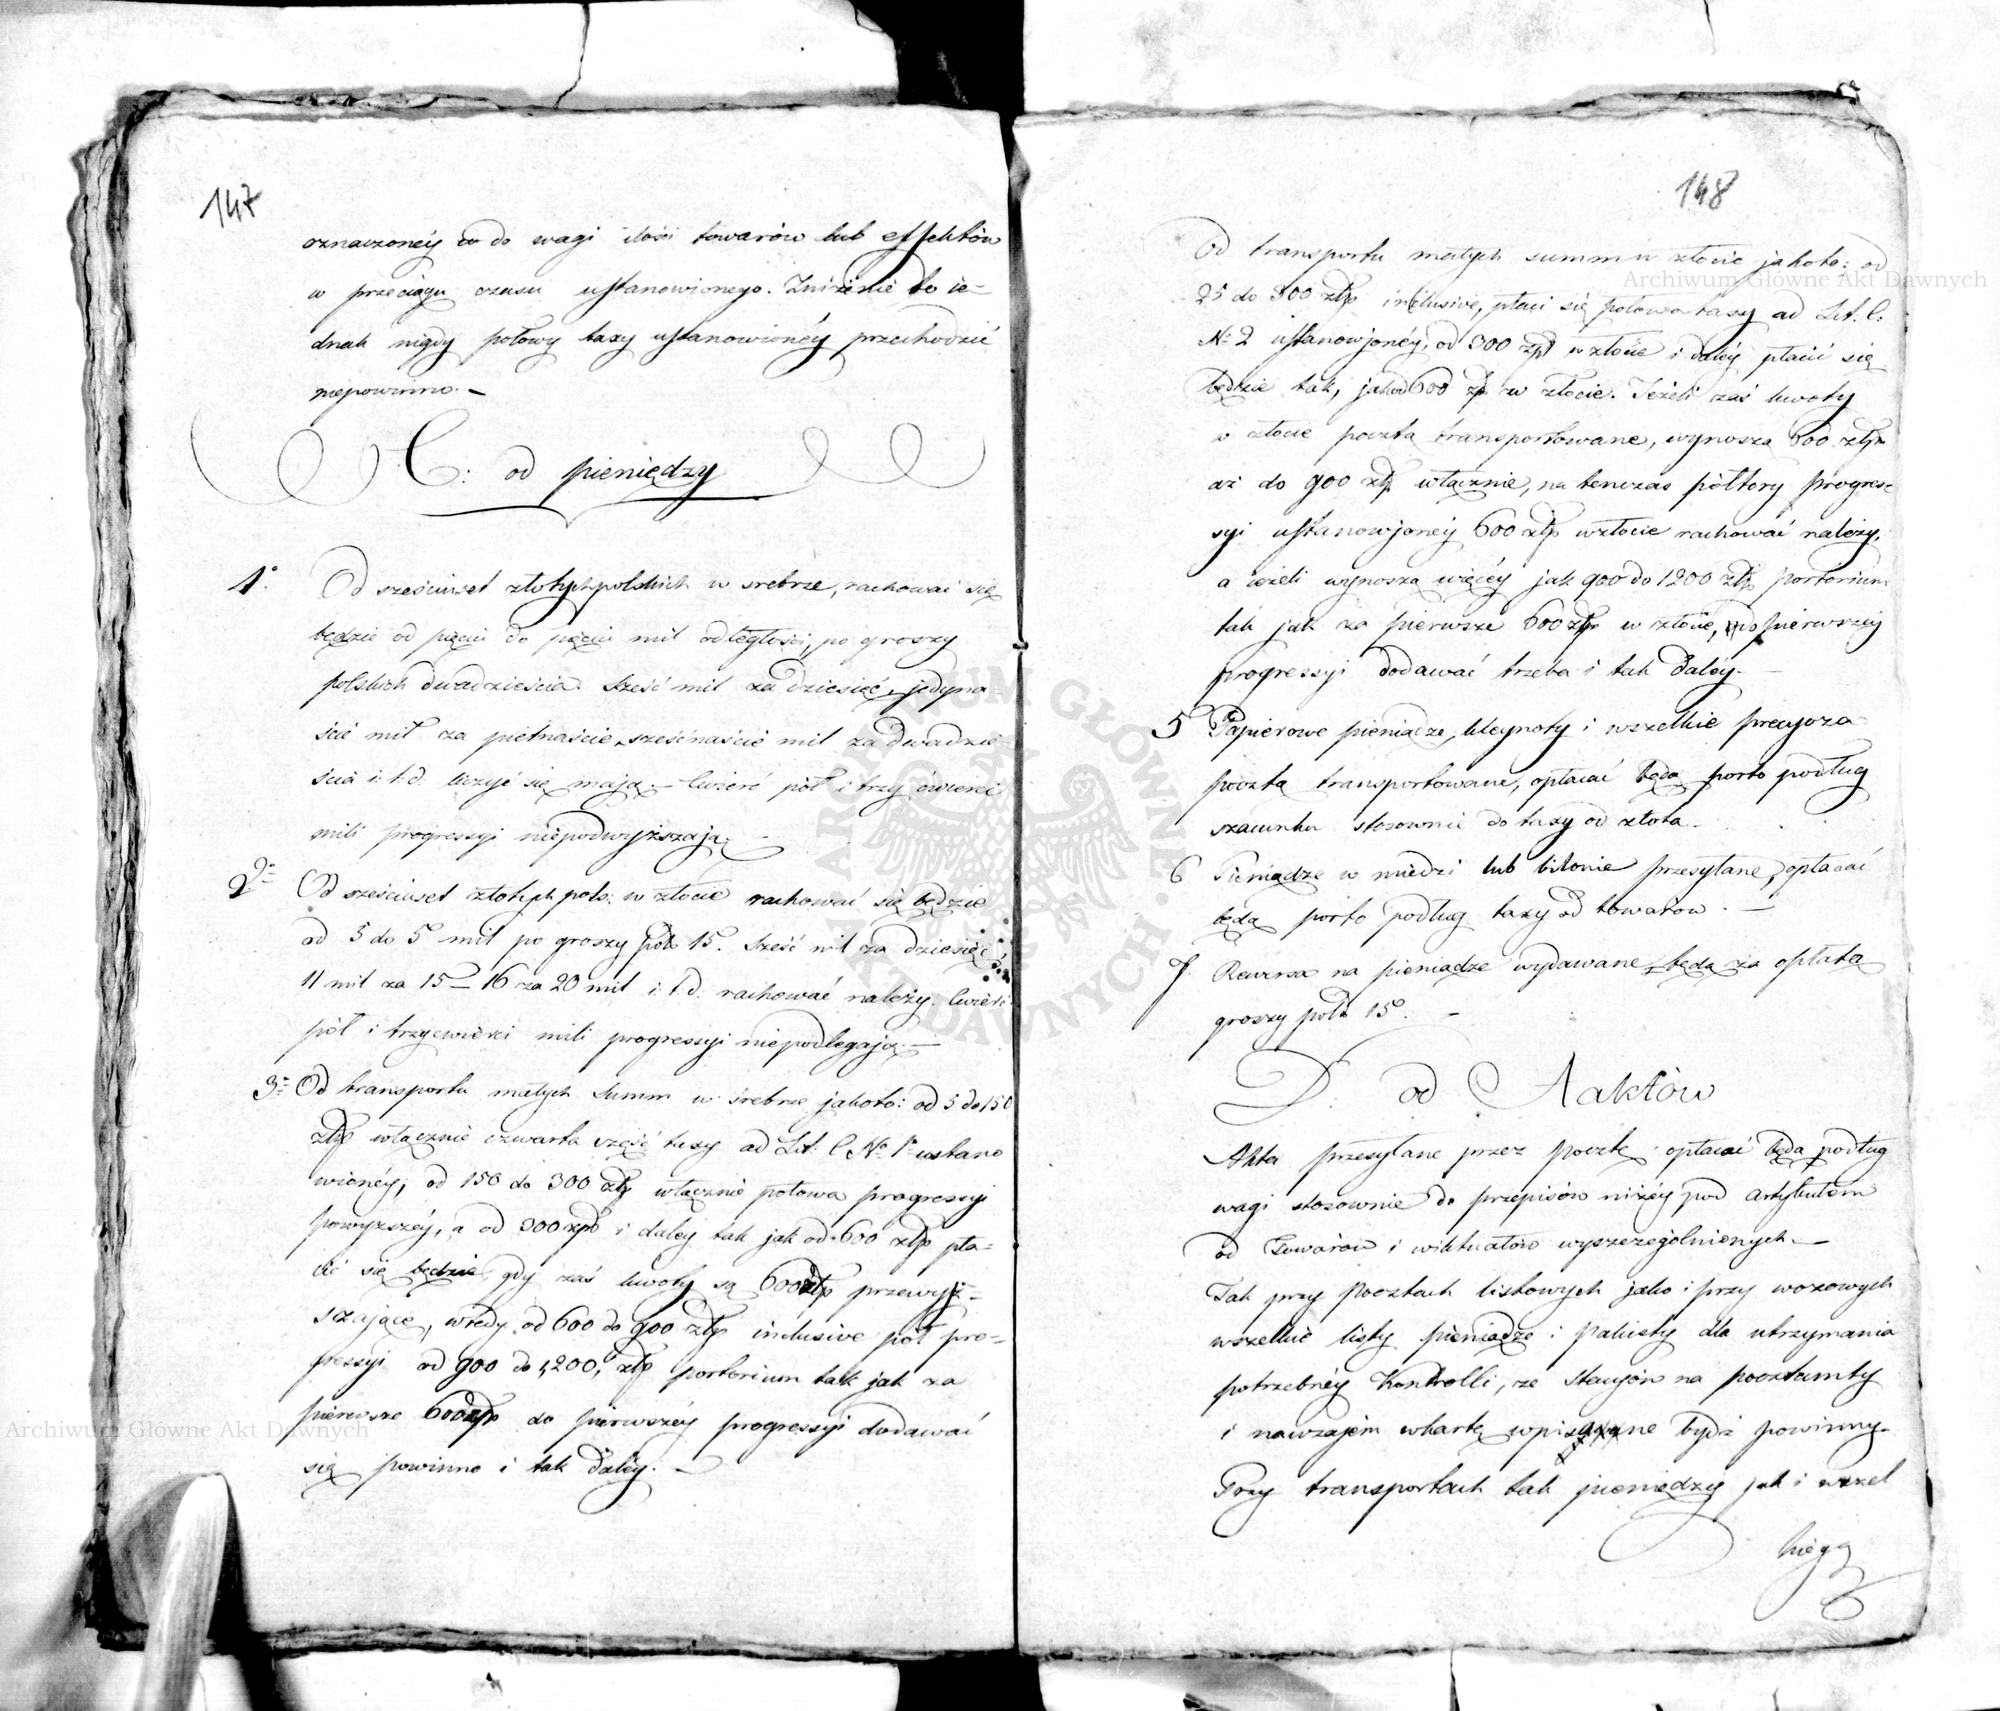 147
oznaczonéy co do wagi ilości towarów lub effektów
w przeciągu czasu ustanowionego. Zniżenie to ie-
dnak nigdy połowy taxy ustanowionéy przechodzić
niepowinno. –
C: od pieniędzy
1° Od sześciuset złotych polskich w srebrze, rachować się
będzie od pięciu do pięciu mil odległości, po groszy
polskich dwadzieścia. Sześć mil za dziesięć, jedyna-
ście mil za piętnaście, sześćnaście mil za dwadzie-
ścia i: t. d. liczyć się mają. – Cwierć pół i trzy ćwierci
mili progressyi niepodwyższają. –
2° Od sześciuset złotych pols: w złocie rachować się będzie
od 5 do 5 mil po groszy pols 15. Sześć mil za dziesięć,
11 mil za 15 – 16 za 20 mil i: t. d: rachować należy. Cwierć
pół i trzy ćwierci mili progressyi niepodlegają. –
3° Od transportu małych summ w śrebrze jakoto: od 5 do 150
złp włącznie czwarta część taxy ad Lit: C No 1° ustano
wionéy, od 150 do 300 złp włącznie połowa progressyi
powyzszéy, a od 300 złp i daléy tak jak od 600 złp pła-
cić się będzie, gdy zaś kwoty są 600 złp przewyż-
szające, wtedy od 600 do 900 złp inclusive pół pro-
gressyi od 900 do 1,200, złp portorium tak jak za
pierwsze 600 złp do pierwszéy progressyi dodawać
się powinno i tak daléy. –
148
Od transportu małych summ w złocie jakoto: od
25 do 300 złp inclusive, płaci się połowa taxy ad Lit. C:
No 2 ustanowjonéy, od 300 złp w złocie i daléy płacić się
będzie tak, jak od 600 złp w złocie. Jeżeli zaś kwoty
w złocie pocztą transportowane, wynoszą 600 złp
aż do 900 złp włącznie, na tenczas półtory progres-
syi ustanowjonéy 600 złp w złocie rachować należy,
a ieżeli wynoszą więcéy jak 900 do 1200 złp portorium
tak jak za pierwsze 600 złp w złocie, do pierwszéy
progressyi dodawać trzeba i tak daléy. –
5 Papierowe pieniądze, kleynoty i wszelkie precyoza
pocztą transportowane, opłacać będą porto podług
szacunku stosownie do taxy od złota.
6 Pieniądze w miedzi lub bilonie przesyłane, opłacać
będą porto podług taxy od towarów. –
7. Rewersa na pieniądze wydawane będą za opłatą
groszy pols 15. –
D: od Aaktów
Akta przesyłane przez pocztę opłacać będą podług
wagi stosownie do przepisów niżéy pod artykułem
od Towarów i wiktuałów wyszczególnionych. –
Tak przy Pocztach listowych jako i przy wozowych
wszelkie listy pieniądze i pakiety dla utrzymania
potrzebnéy Kontrolli, ze Stacyów na pocztamty
i nawzajem w kartę wpisane bydź powinny.
Przy transportach tak pieniędzy jak i wszel
kiego
Archiwum Główne Akt Dawnych
Archiwum Główne Akt Dawnych
ARCHIWUM GŁÓWNE AKT DAWNYCH